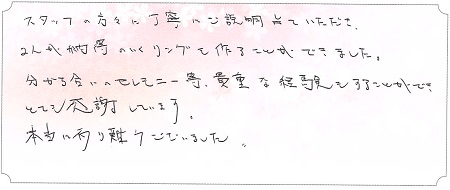 スタッフの方々に丁寧にご説明していただき、
2人が納得のいくリングを作ることができました。
分かち合いのセレモニー等、貴重な経験をすることができ
とても感謝しています。
本当に有り難うございました。